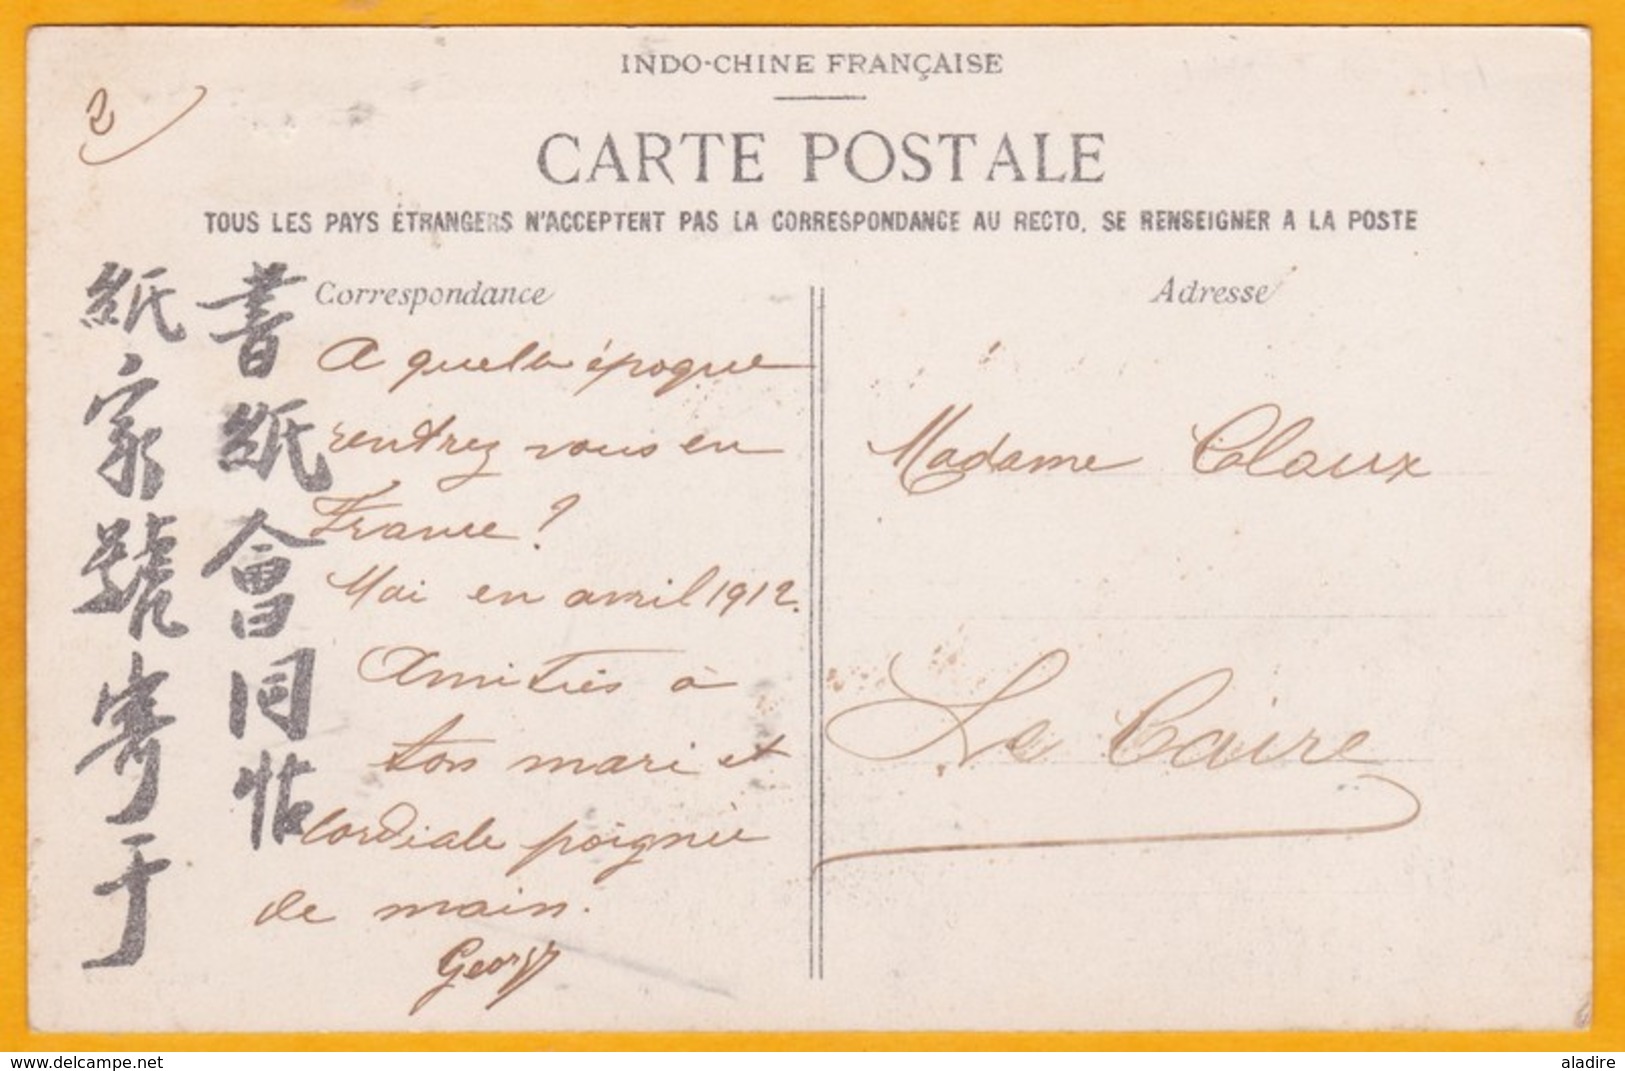 2
INDO-CHINE FRANÇAISE
CARTE POSTALE
TOUS LES PAYS ÉTRANGERS N'ACCEPTENT PAS LA CORRESPONDANCE AU RECTO, SE RENSEIGNER A LA POSTE
書紙會同帖
紙家號寄于
Correspondance
A quelle époque
rentrez vous en
France ?
Moi en avril 1912.
Amitiés à
ton mari et
cordiale poignée
de main.
Georges
Adresse
Madame Claux
Le Caire
delcampe.net
aladire